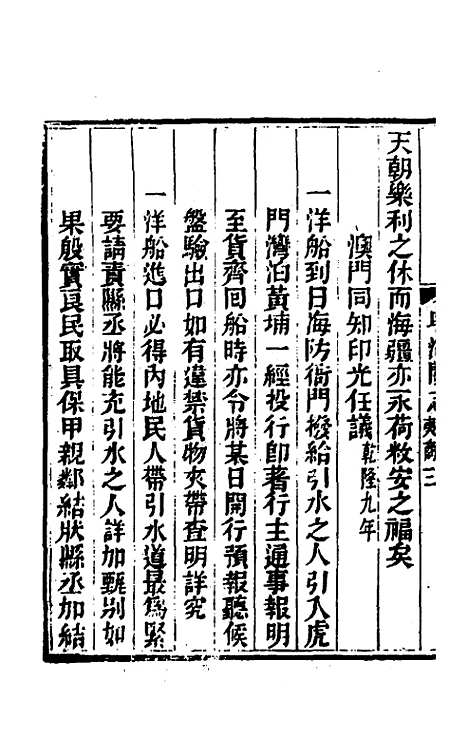 天朝樂利之休而海疆亦永荷敉安之福矣
澳門同知印光任議乾隆九年
一洋船到日海防衙門撥給引水之人引入虎
門灣泊黃埔一經投行即著行主通事報明
至貨齊回船時亦令將某日開行預報聽候
盤驗出口如有違禁貨物夾帶查明詳究
一洋船進口必得內地民人帶引水道最爲緊
要請責縣丞將能充引水之人詳加甄别如
果殷實良民取具保甲親鄰結狀縣丞加結